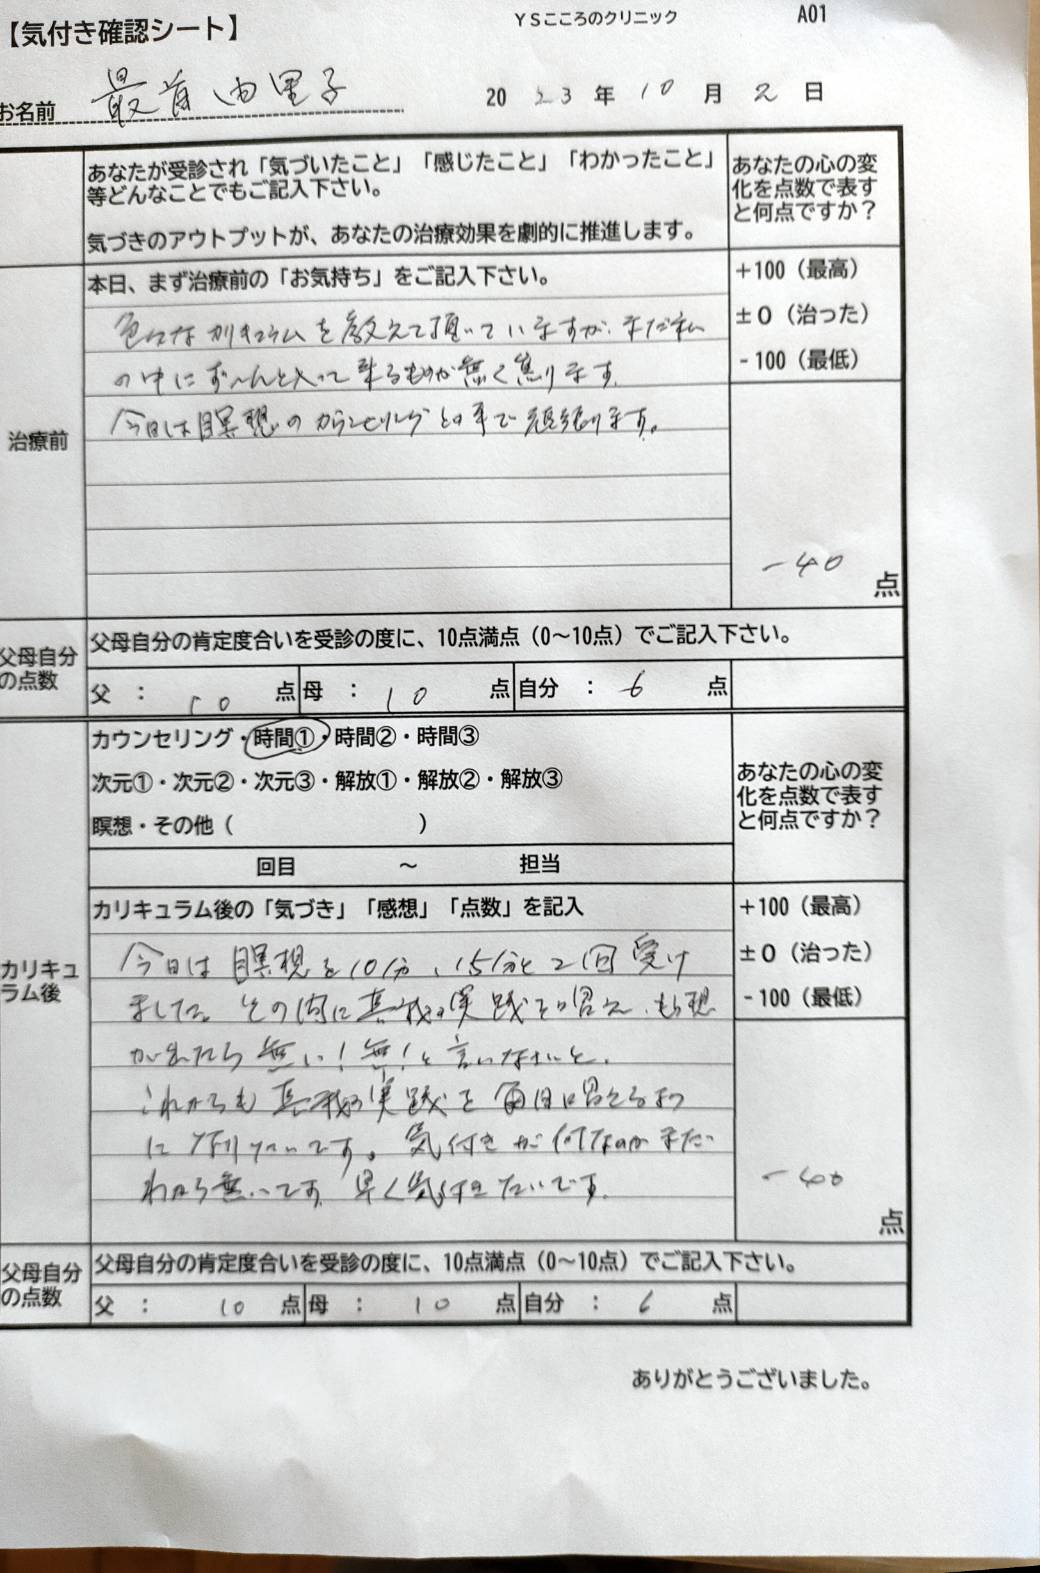 【気付き確認シート】
YSこころのクリニック
A01
お名前 最首由里子
2023年10月2日
あなたが受診され「気づいたこと」「感じたこと」「わかったこと」
等どんなことでもご記入下さい。
気づきのアウトプットが、あなたの治療効果を劇的に推進します。
あなたの心の変
化を点数で表す
と何点ですか？
治療前
本日、まず治療前の「お気持ち」をご記入下さい。
色々なカリキュラムを教えて頂いていますが、まだ私
の中にず〜んと入って来るものが無く焦ります。
今日は瞑想のカウンセリングとの事で頑張ります。
+100（最高）
±0（治った）
-100（最低）
-40
点
父母自分
の点数
父母自分の肯定度合いを受診の度に、10点満点（0〜10点）でご記入下さい。
父 ： 10 点 母 ： 10 点 自分 ： 6 点
カウンセリング・時間①・時間②・時間③
次元①・次元②・次元③・解放①・解放②・解放③
瞑想・その他（ ）
回目 〜 担当
あなたの心の変
化を点数で表す
と何点ですか？
カリキュ
ラム後
カリキュラム後の「気づき」「感想」「点数」を記入
今日は瞑想を10分、15分と2回受け
ました。その間に真我の実践を唱え、もし想
が出たら無い！無！と言いなさいと。
これからも真我の実践を毎日唱えるよう
に なりたいです。気付きが何なのかまだ
わから無いです。早く気付きたいです。
+100（最高）
±0（治った）
-100（最低）
-40
点
父母自分
の点数
父母自分の肯定度合いを受診の度に、10点満点（0〜10点）でご記入下さい。
父 ： 10 点 母 ： 10 点 自分 ： 6 点
ありがとうございました。